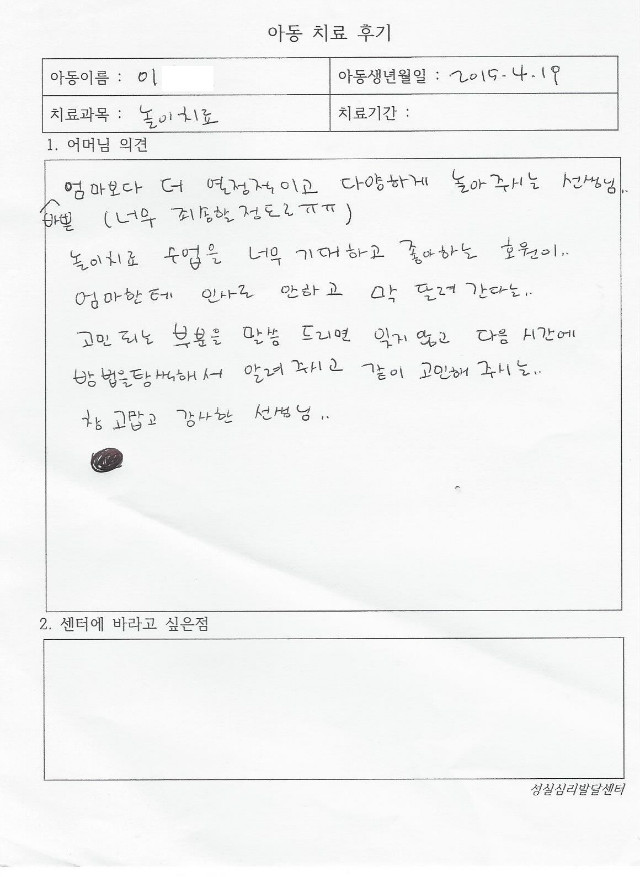 아동 치료 후기
아동이름 : 이
아동생년월일 : 2015-4.19
치료과목 : 놀이치료
치료기간 :
1. 어머님 의견
엄마보다 더 열정적이고 다양하게 놀아주시는 선생님..
바쁜 (너무 죄송할정도로ㅠㅠ)
놀이치료 수업을 너무 기대하고 좋아하는 호원이..
엄마한테 인사도 안하고 막 달려 간다는..
고민 되는 부분을 말씀 드리면 잊지않고 다음 시간에
방법을탐색해서 알려 주시고 같이 고민해 주시는..
참 고맙고 감사한 선생님..
2. 센터에 바라고 싶은점
성실심리발달센터